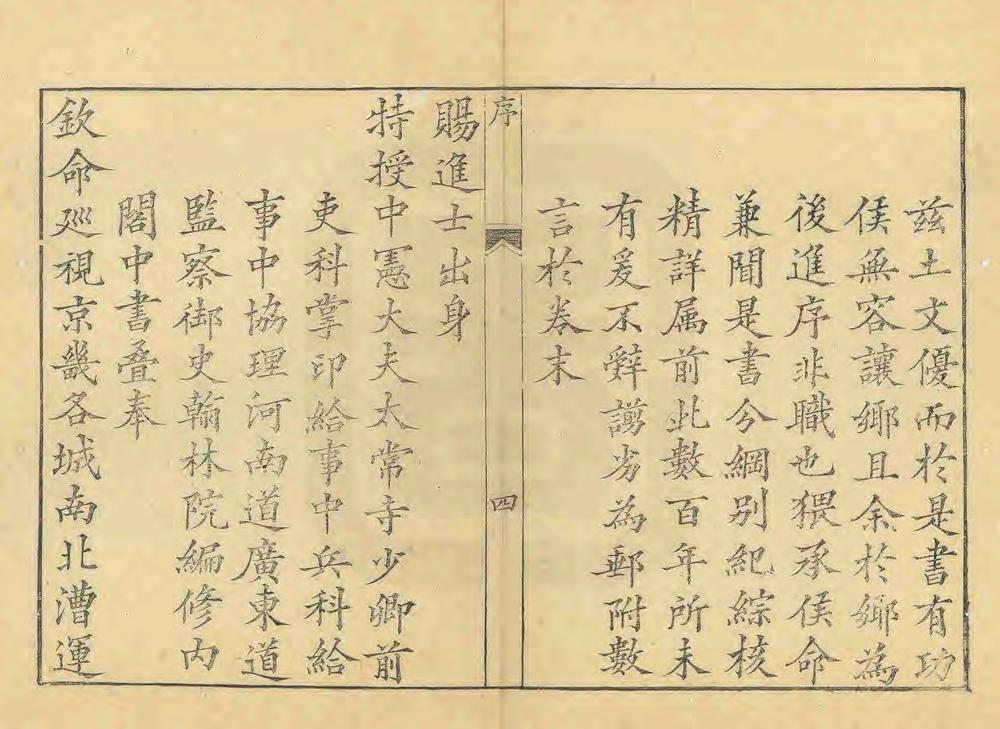 茲土文優而於是書有功
侯無容讓鄉且余於鄉為
後進序非職也猥承侯命
兼閱是書分綱別紀綜核
精詳属前此數百年所未
有爰不辭謭劣為郵附數
言於卷末
序
四
賜進士出身
特授中憲大夫太常寺少卿前
吏科掌印給事中兵科給
事中協理河南道廣東道
監察御史翰林院編修內
閣中書叠奉
欽命巡視京畿各城南北漕運